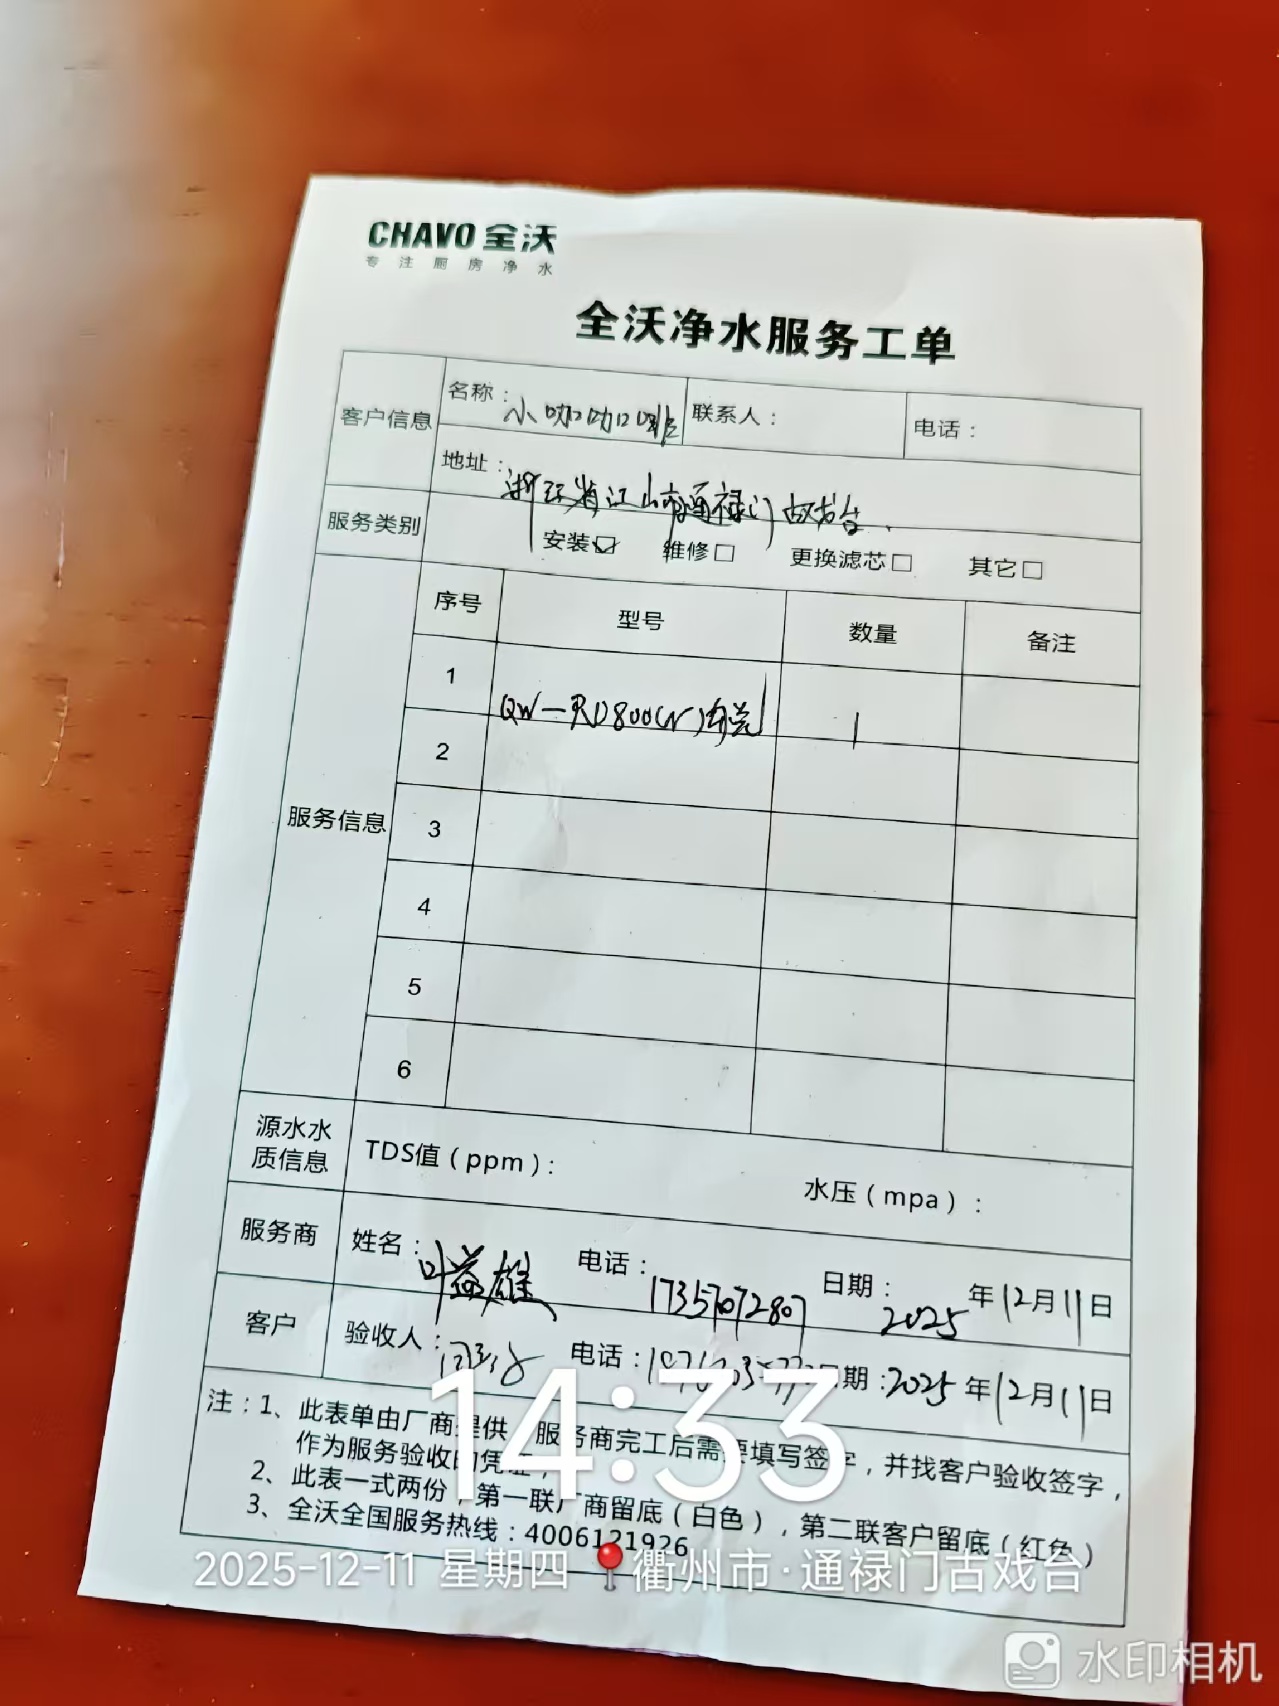 CHAVO 全沃
专注厨房净水
全沃净水服务工单
客户信息
名称：小咖咖啡
联系人：
电话：
地址：浙江省江山市通禄门古戏台.
服务类别
安装☑ 维修□ 更换滤芯□ 其它□
服务信息
序号 型号 数量 备注
1 QW-RD800 1
2
3
4
5
6
源水水质信息
TDS值（ppm）：
水压（mpa）：
服务商
姓名：叶益雄 电话：17357072807 日期：2025年12月11日
客户
验收人： 电话： 日期：2025年12月11日
注：1、此表单由厂商提供，服务商完工后需要填写签字，并找客户验收签字，
作为服务验收的凭证，
2、此表一式两份，第一联厂商留底（白色），第二联客户留底（红色）
3、全沃全国服务热线：4006121926
14:33
2025-12-11 星期四 衢州市·通禄门古戏台
水印相机